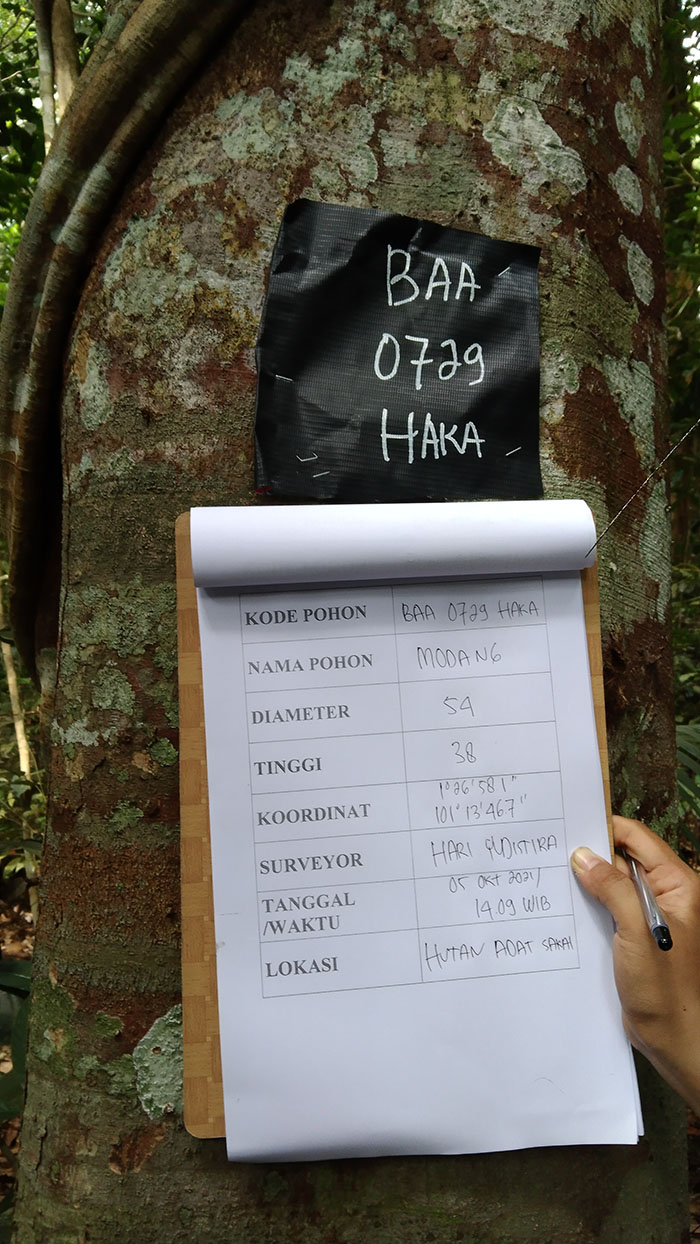 BAA
0729
HAKA
KODE POHON BAA 0729 HAKA
NAMA POHON MODANG
DIAMETER 54
TINGGI 38
KOORDINAT 1°26'581" 101°13'467"
SURVEYOR HARI YUDISTIRA
TANGGAL /WAKTU 05 OKT 2021/ 14.09 WIB
LOKASI HUTAN ADAT SAKAI